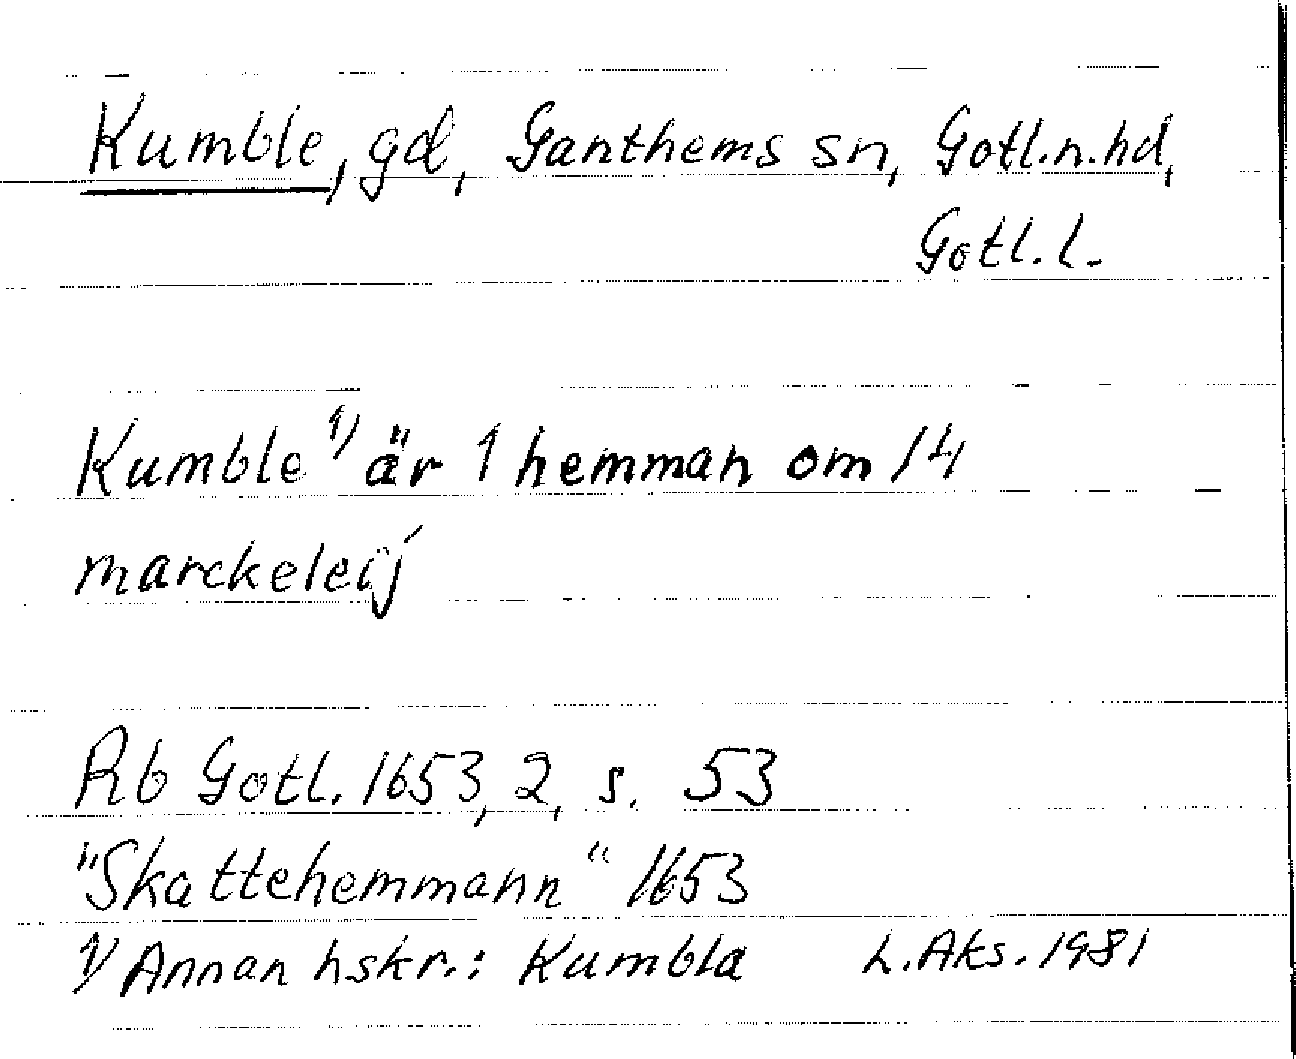 Kumble, gd, Ganthems sn, Gotl.n.hd,
Gotl.l.
Kumble 1) är 1 hemman om 14
marckeleij
Rb Gotl. 1653, 2, s. 53
"Skattehemmann" 1653
1) Annan hskr.: Kumbla L.Aks. 1981